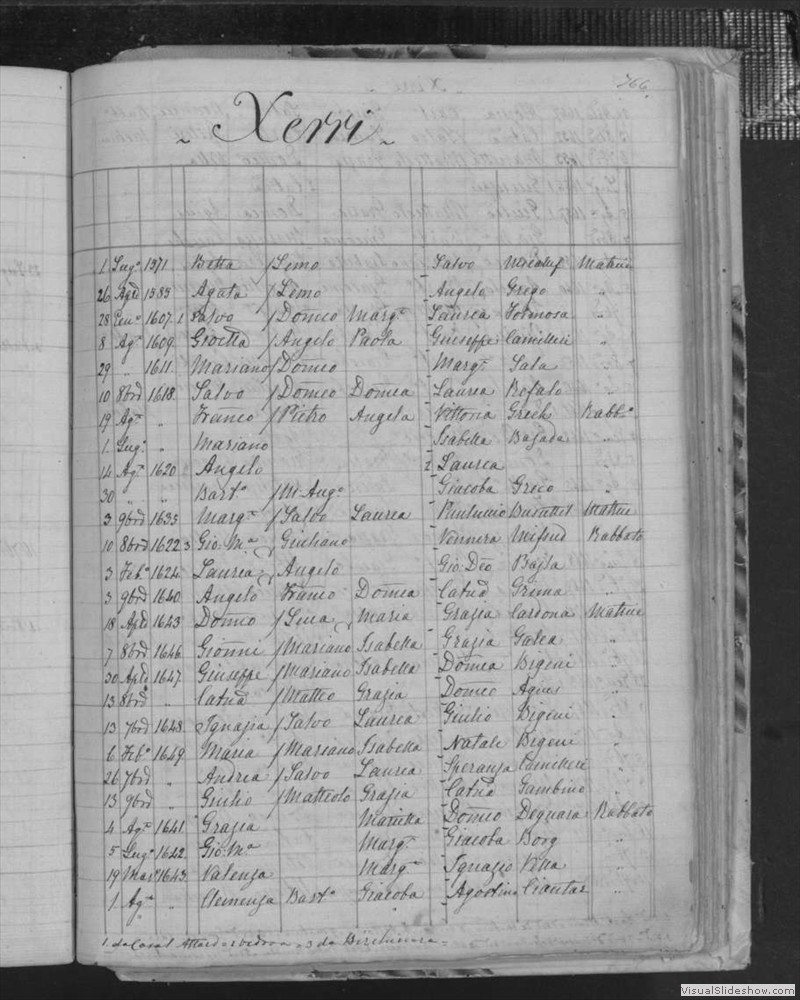 766.
~ Xerri ~
1 Lug.º 1571. Betta / Simo Salvo Matine
26 Aple 1585 Agata / Simo Angelo Grego "
28 Genº 1607. 1 Salvo / Domco Margª Laurea Formosa "
8 Agº 1609. Gioetta / Angelo Paola Giuseppe Camilleri "
29 " 1611. Mariano / Domco Margª Sala "
10 8bre 1618. Salvo / Domco Domca Laurea Refalo "
19 Agº " Franco / Pietro Angela Vittoria Grech Rabbº
1. Lugº " Mariano Isabella Bajada "
14 Agº 1620 Angelo 2 Laurea
30 " " Bartº / M Angº Giacoba Greco "
3 9bre 1635 Margª / Salvo Laurea Matine
10 8bre 1622 3 Gio. Mª / Giuliano Vennera Mifsud Rabbato
3 Febº 1624 Laurea / Angelo Gio Deo
3 9bre 1640 Angelo Franco Domca Catnd Grima "
18 Aple 1643 Domco / Luca Maria Grazia Cardona Matine
7 8bre 1646 Gionni / Mariano Isabella Grazia Galea "
30 Aple 1647 Giuseppe / Mariano Isabella Domca Bigeni "
13 8bre " Catnd / Matteo Grazia Domco Agius "
13 7bre 1648 Ignazia / Salvo Laurea Giulio Bigeni "
6 Febº 1649 Maria / Mariano Isabella Natale Bigeni "
26 7bre " Andrea / Salvo Laurea Speranza Camilleri "
13 9bre " Giulio / Matteolo Grazia Catnd Gambino "
4 Agº 1641 Grazia Domco Deguara Rabbato
5 Lugº 1642 Gio. Mª Margª Giacoba Borg "
19 Marº 1643 Valenza Margª Ignazio Vella "
1 Agº " Clemenza Bartº Giacoba Agostina Ciantar "
1 da Casal Attard = 2 vedova = 3 da Birchircara =
VisualSlideshow.com